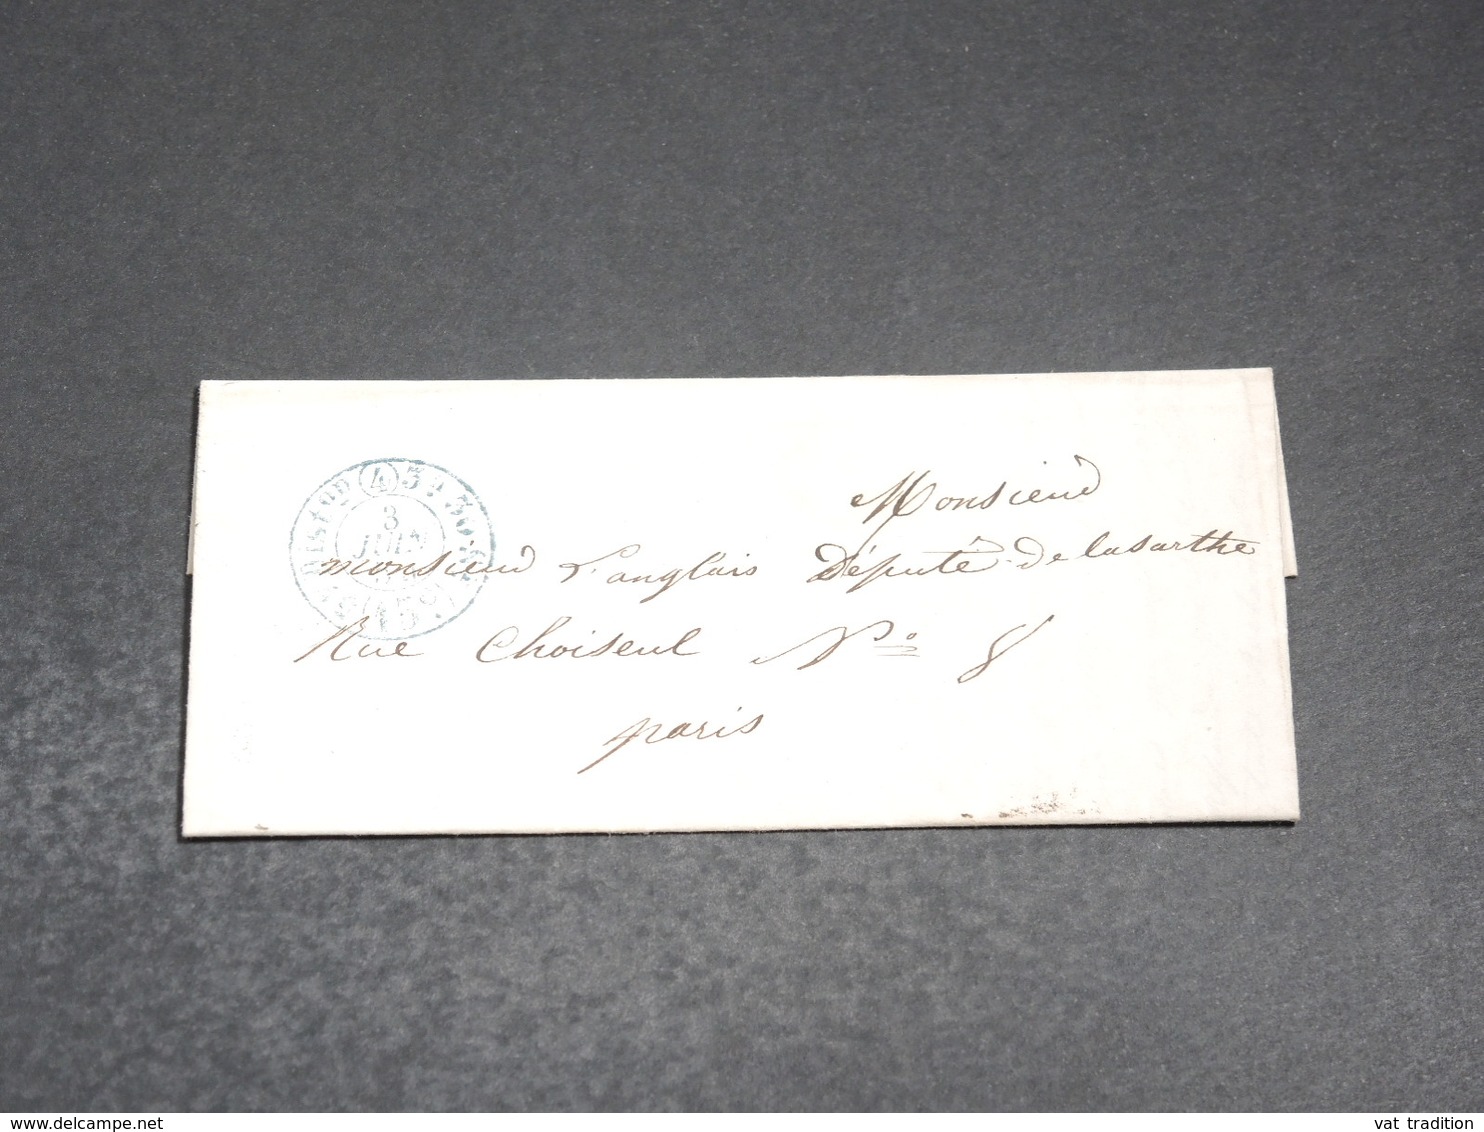 Monsieur
monsieur Langlais Députè de lasarthe
Rue Choiseul No 8
paris
4
3
JUIN
vat tradition